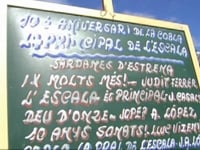 10è ANIVERSARI DE LA COBLA
LA PRINCIPAL DE L'ESCALA
SARDANES D'ESTRENA
1 X MOLTS MÉS! - JUDIT FERRER
L'ESCALA ÉS PRINCIPAL - J. CASALS
DEU D'ONZE - JOSEP A. LÓPEZ
10 ANYS SONATS! LLUC VIZEN
COBLA LA PRAL DE L'ESCALA - J. A. LÓ